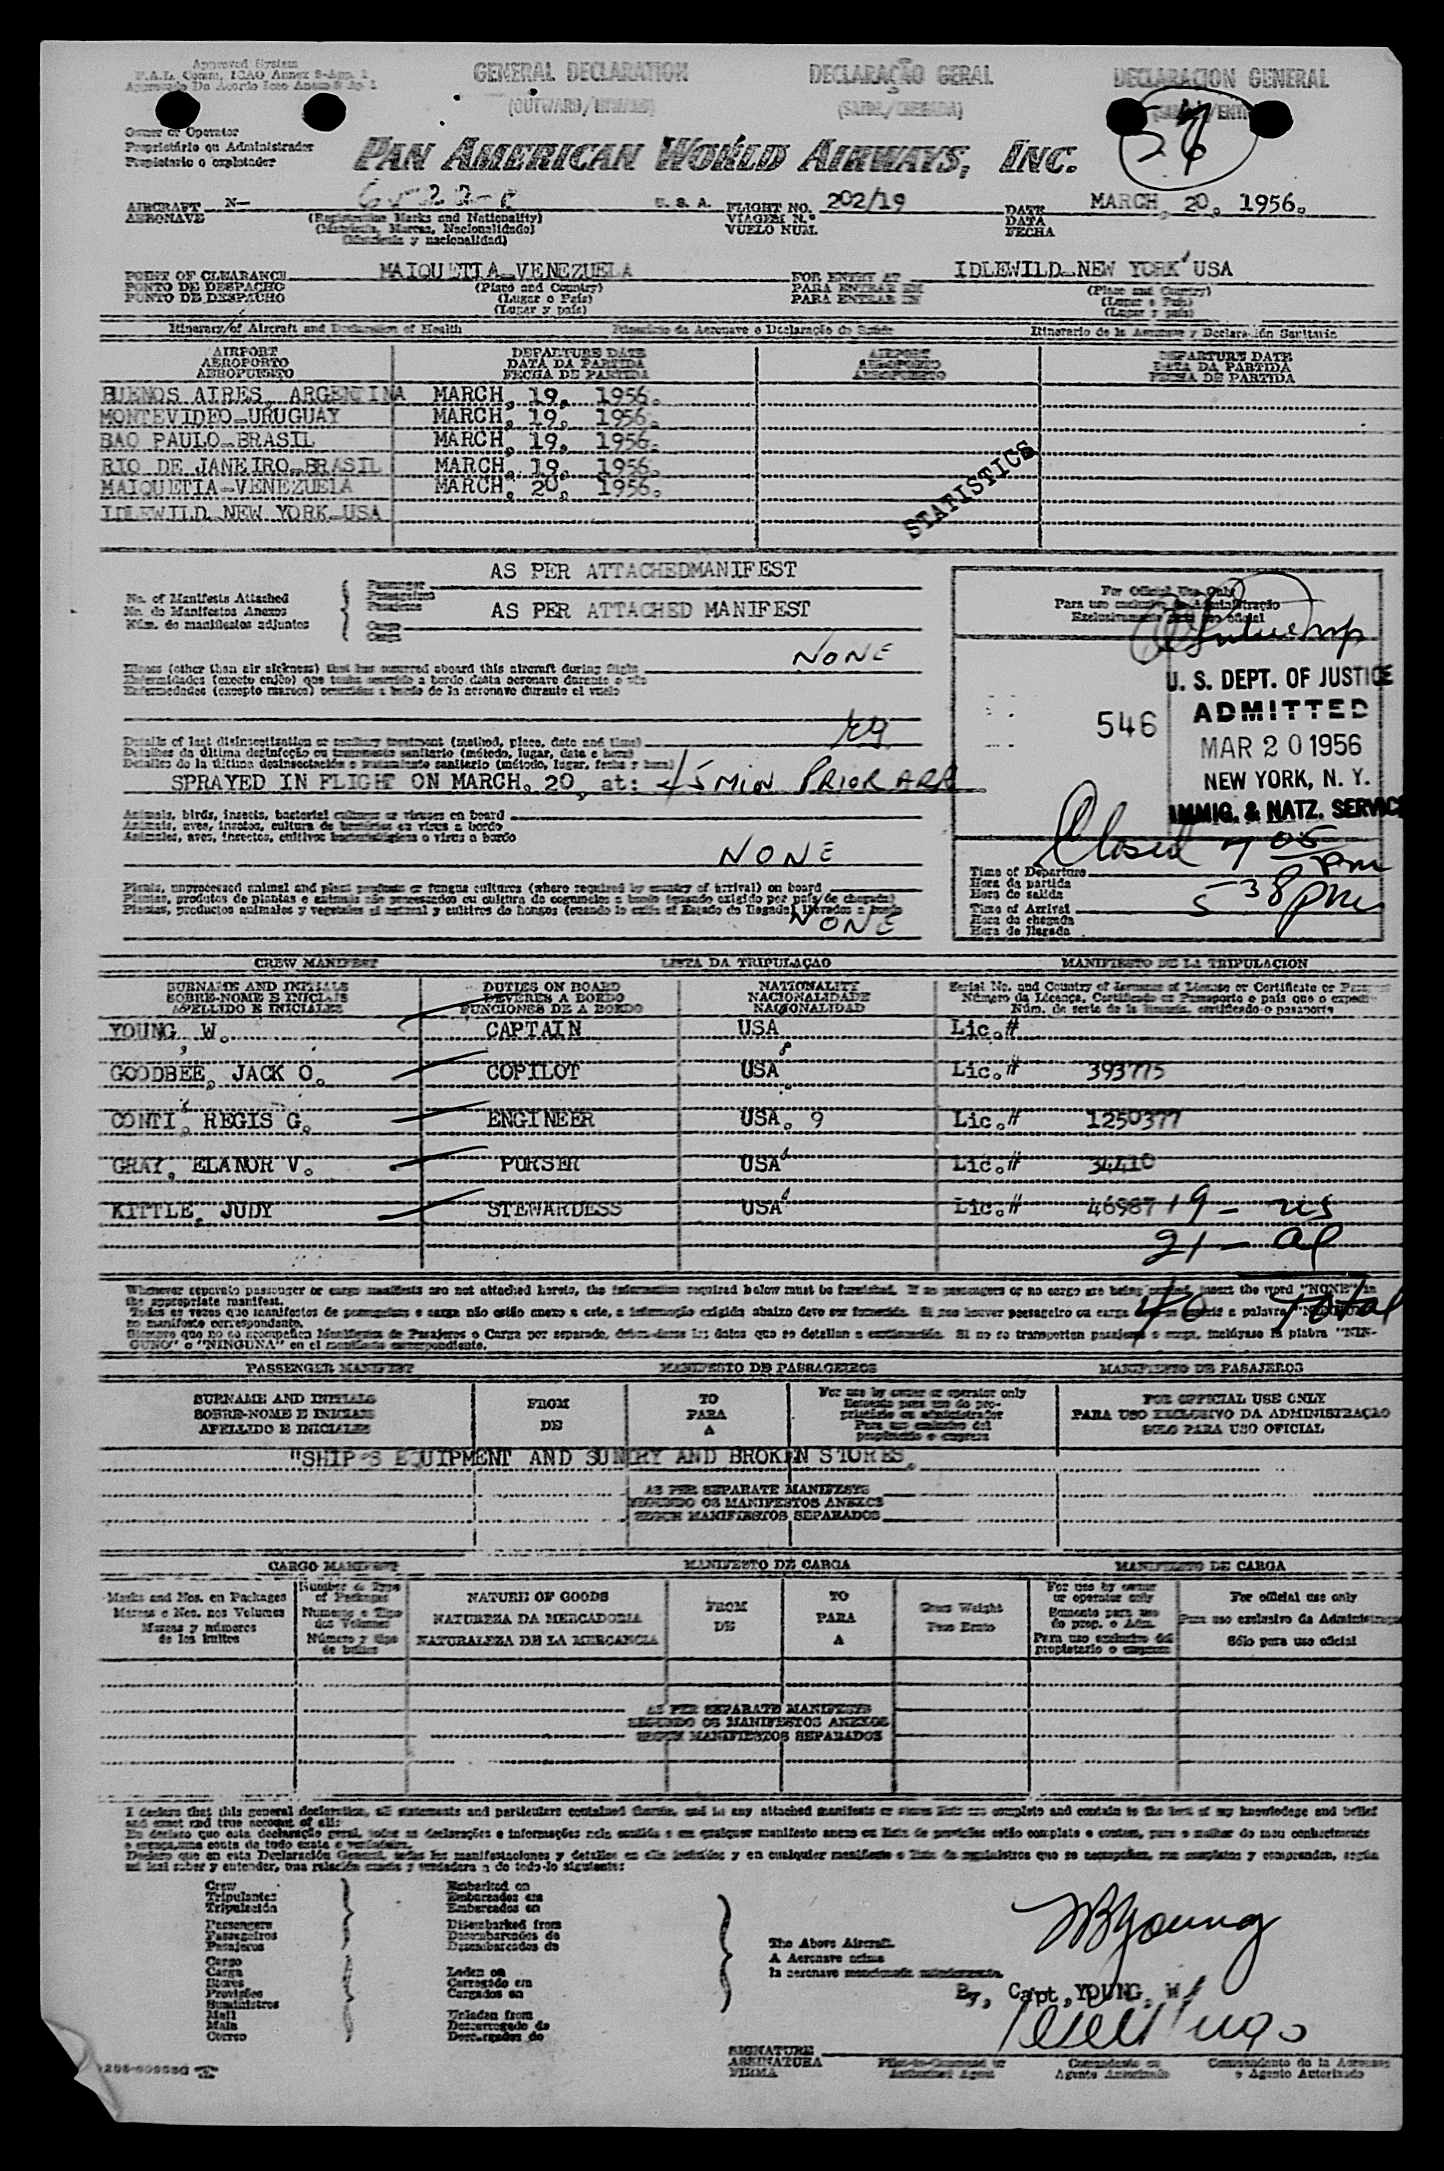 Approved System
F.A.L. Comm. ICAO Annex 9-App. 1
GENERAL DECLARATION
DECLARAÇÃO GERAL
DECLARACION GENERAL
(OUTWARD/INWARD)
(SAIDA/CHEGADA)
Owner or Operator
Proprietário ou Administrador
Propietario o explotador
PAN AMERICAN WORLD AIRWAYS, INC.
AIRCRAFT N— U. S. A. FLIGHT NO. 202/19 DATE MARCH, 20, 1956.
AERONAVE (Registration Marks and Nationality) VIAGEM N.º DATA
(Matrícula, Marcas, Nacionalidade) VUELO NUM. FECHA
(Matrícula y nacionalidad)
POINT OF CLEARANCE MAIQUETIA-VENEZUELA FOR ENTRY AT IDLEWILD-NEW YORK USA
PONTO DE DESPACHO (Place and Country) PARA ENTRAR EM (Place and Country)
PUNTO DE DESPACHO (Lugar o País) PARA ENTRAR EN (Lugar o País)
(Lugar y país) (Lugar y país)
Itinerary of Aircraft and Declaration of Health Itinerário da Aeronave e Declaração de Saúde Itinerario de la Aeronave y Declaración Sanitaria
AIRPORT DEPARTURE DATE AIRPORT DEPARTURE DATE
AEROPORTO DATA DA PARTIDA AEROPORTO DATA DA PARTIDA
AEROPUERTO FECHA DE PARTIDA AEROPUERTO FECHA DE PARTIDA
BUENOS AIRES, ARGENTINA MARCH, 19, 1956.
MONTEVIDEO-URUGUAY MARCH, 19, 1956.
SAO PAULO-BRASIL MARCH, 19, 1956.
RIO DE JANEIRO-BRASIL MARCH, 19, 1956.
MAIQUETIA-VENEZUELA MARCH, 20, 1956.
IDLEWILD NEW YORK-USA
STATISTICS
AS PER ATTACHEDMANIFEST
No. of Manifests Attached Passenger
No. de Manifestos Anexos Passageiros
Núm. de manifiestos adjuntos Pasajeros
AS PER ATTACHED MANIFEST
Cargo
Carga
For Official Use Only
Para uso exclusivo da Administração
Exclusivamente para uso oficial
NONE
Illness (other than air sickness) that has occurred aboard this aircraft during flight
Enfermidades (exceto enjôo) que tenha ocorrido a bordo desta aeronave durante o vôo
Enfermedades (excepto mareo) ocurridas a bordo de la aeronave durante el vuelo
U. S. DEPT. OF JUSTICE
ADMITTED
546
MAR 20 1956
NEW YORK, N. Y.
IMMIG. & NATZ. SERVICE
Details of last disinsectization or sanitary treatment (method, place, date and time)
Detalhes da última desinfeção ou tratamento sanitario (método, lugar, data e hora)
Detalles de la última desinsectación o tratamiento sanitario (método, lugar, fecha y hora)
SPRAYED IN FLIGHT ON MARCH, 20, at: 45 MIN PRIOR ARR
Animals, birds, insects, bacterial cultures or viruses on board
Animais, aves, insetos, cultura de bactérias ou virus a bordo
Animales, aves, insectos, cultivos bacteriológicos o virus a bordo
NONE
Closed 7 05 pm
Time of Departure
Hora da partida
Hora de salida
5 38 pm
Time of Arrival
Hora da chegada
Hora de llegada
Plants, unprocessed animal and plant products or fungus cultures (where required by country of arrival) on board
Plantas, produtos de plantas e animais não processados ou cultura de cogumelos a bordo (quando exigido por país de chegada)
Plantas, productos animales y vegetales al natural y cultivos de hongos (cuando lo exija el Estado de llegada) llevados a bordo
NONE
CREW MANIFEST LISTA DA TRIPULAÇAO MANIFIESTO DE LA TRIPULACION
SURNAME AND INITIALS DUTIES ON BOARD NATIONALITY Serial No. and Country of Issuance of License or Certificate or Passport
SOBRE-NOME E INICIAIS DEVERES A BORDO NACIONALIDADE Número da Licença, Certificado ou Passaporte e país que o expediu
APELLIDO E INICIALES FUNCIONES DE A BORDO NACIONALIDAD Núm. de serie de la licencia, certificado o pasaporte
YOUNG, W. CAPTAIN USA Lic.#
GOODBEE, JACK O. COPILOT USA Lic.# 393775
CONTI, REGIS G. ENGINEER USA. 9 Lic.# 1250377
GRAY, ELANOR V. PURSER USA Lic.# 34410
KITTLE, JUDY STEWARDESS USA Lic.# 46987 19 - us
21 - al
40 Total
Whenever separate passenger or cargo manifests are not attached hereto, the information required below must be furnished. If no passengers or no cargo are being carried, insert the word "NONE" in
the appropriate manifest.
no manifesto correspondente.
GUNO" o "NINGUNA" en el manifiesto correspondiente.
PASSENGER MANIFEST MANIFESTO DE PASSAGEIROS MANIFIESTO DE PASAJEROS
SURNAME AND INITIALS FROM TO For use by owner or operator only FOR OFFICIAL USE ONLY
SOBRE-NOME E INICIAIS PARA PARA USO EXCLUSIVO DA ADMINISTRAÇÃO
APELLIDO E INICIALES DE A SOLO PARA USO OFICIAL
"SHIP'S EQUIPMENT AND SUNDRY AND BROKEN STORES
AS PER SEPARATE MANIFESTS
SEGUNDO OS MANIFESTOS ANEXOS
SEGUN MANIFIESTOS SEPARADOS
CARGO MANIFEST MANIFESTO DE CARGA MANIFIESTO DE CARGA
Marks and Nos. on Packages Number & Type of Packages NATURE OF GOODS FROM TO Gross Weight For use by owner or operator only For official use only
Marcas e Nos. nos Volumes Numero e Tipo dos Volumes NATUREZA DA MERCADORIA DE PARA Peso Bruto Somente para uso do prop. o Adm. Para uso exclusivo da Administração
Marcas y números de los bultos Número y tipo de bultos NATURALEZA DE LA MERCANCIA A Para uso exclusivo del propietario o empresa Sólo para uso oficial
AS PER SEPARATE MANIFESTS
SEGUNDO OS MANIFESTOS ANEXOS
SEGUN MANIFIESTOS SEPARADOS
I declare that this general declaration, all statements and particulars contained therein, and in any attached manifests or stores lists are complete and contain to the best of my knowledge and belief
and exact and true account of all:
Crew Embarked on
Tripulantes Embarcados em
Tripulación Embarcados en
Passengers Disembarked from
Passageiros Desembarcados de
Pasajeros Desembarcados de
Cargo
Carga Laden on
Stores Carregado em
Provisões Cargados en
Suministros
Mail Unladen from
Mala Descarregado de
Correo Descargados de
The Above Aircraft.
A Aeronave acima
la aeronave mencionada anteriormente.
WB Young
By, Capt, YOUNG, W.
SIGNATURE
ASSINATURA Pilot-in-Command or Comandante ou Comandante de la Aeronave
FIRMA Authorized Agent Agente Autorizado o Agente Autorizado